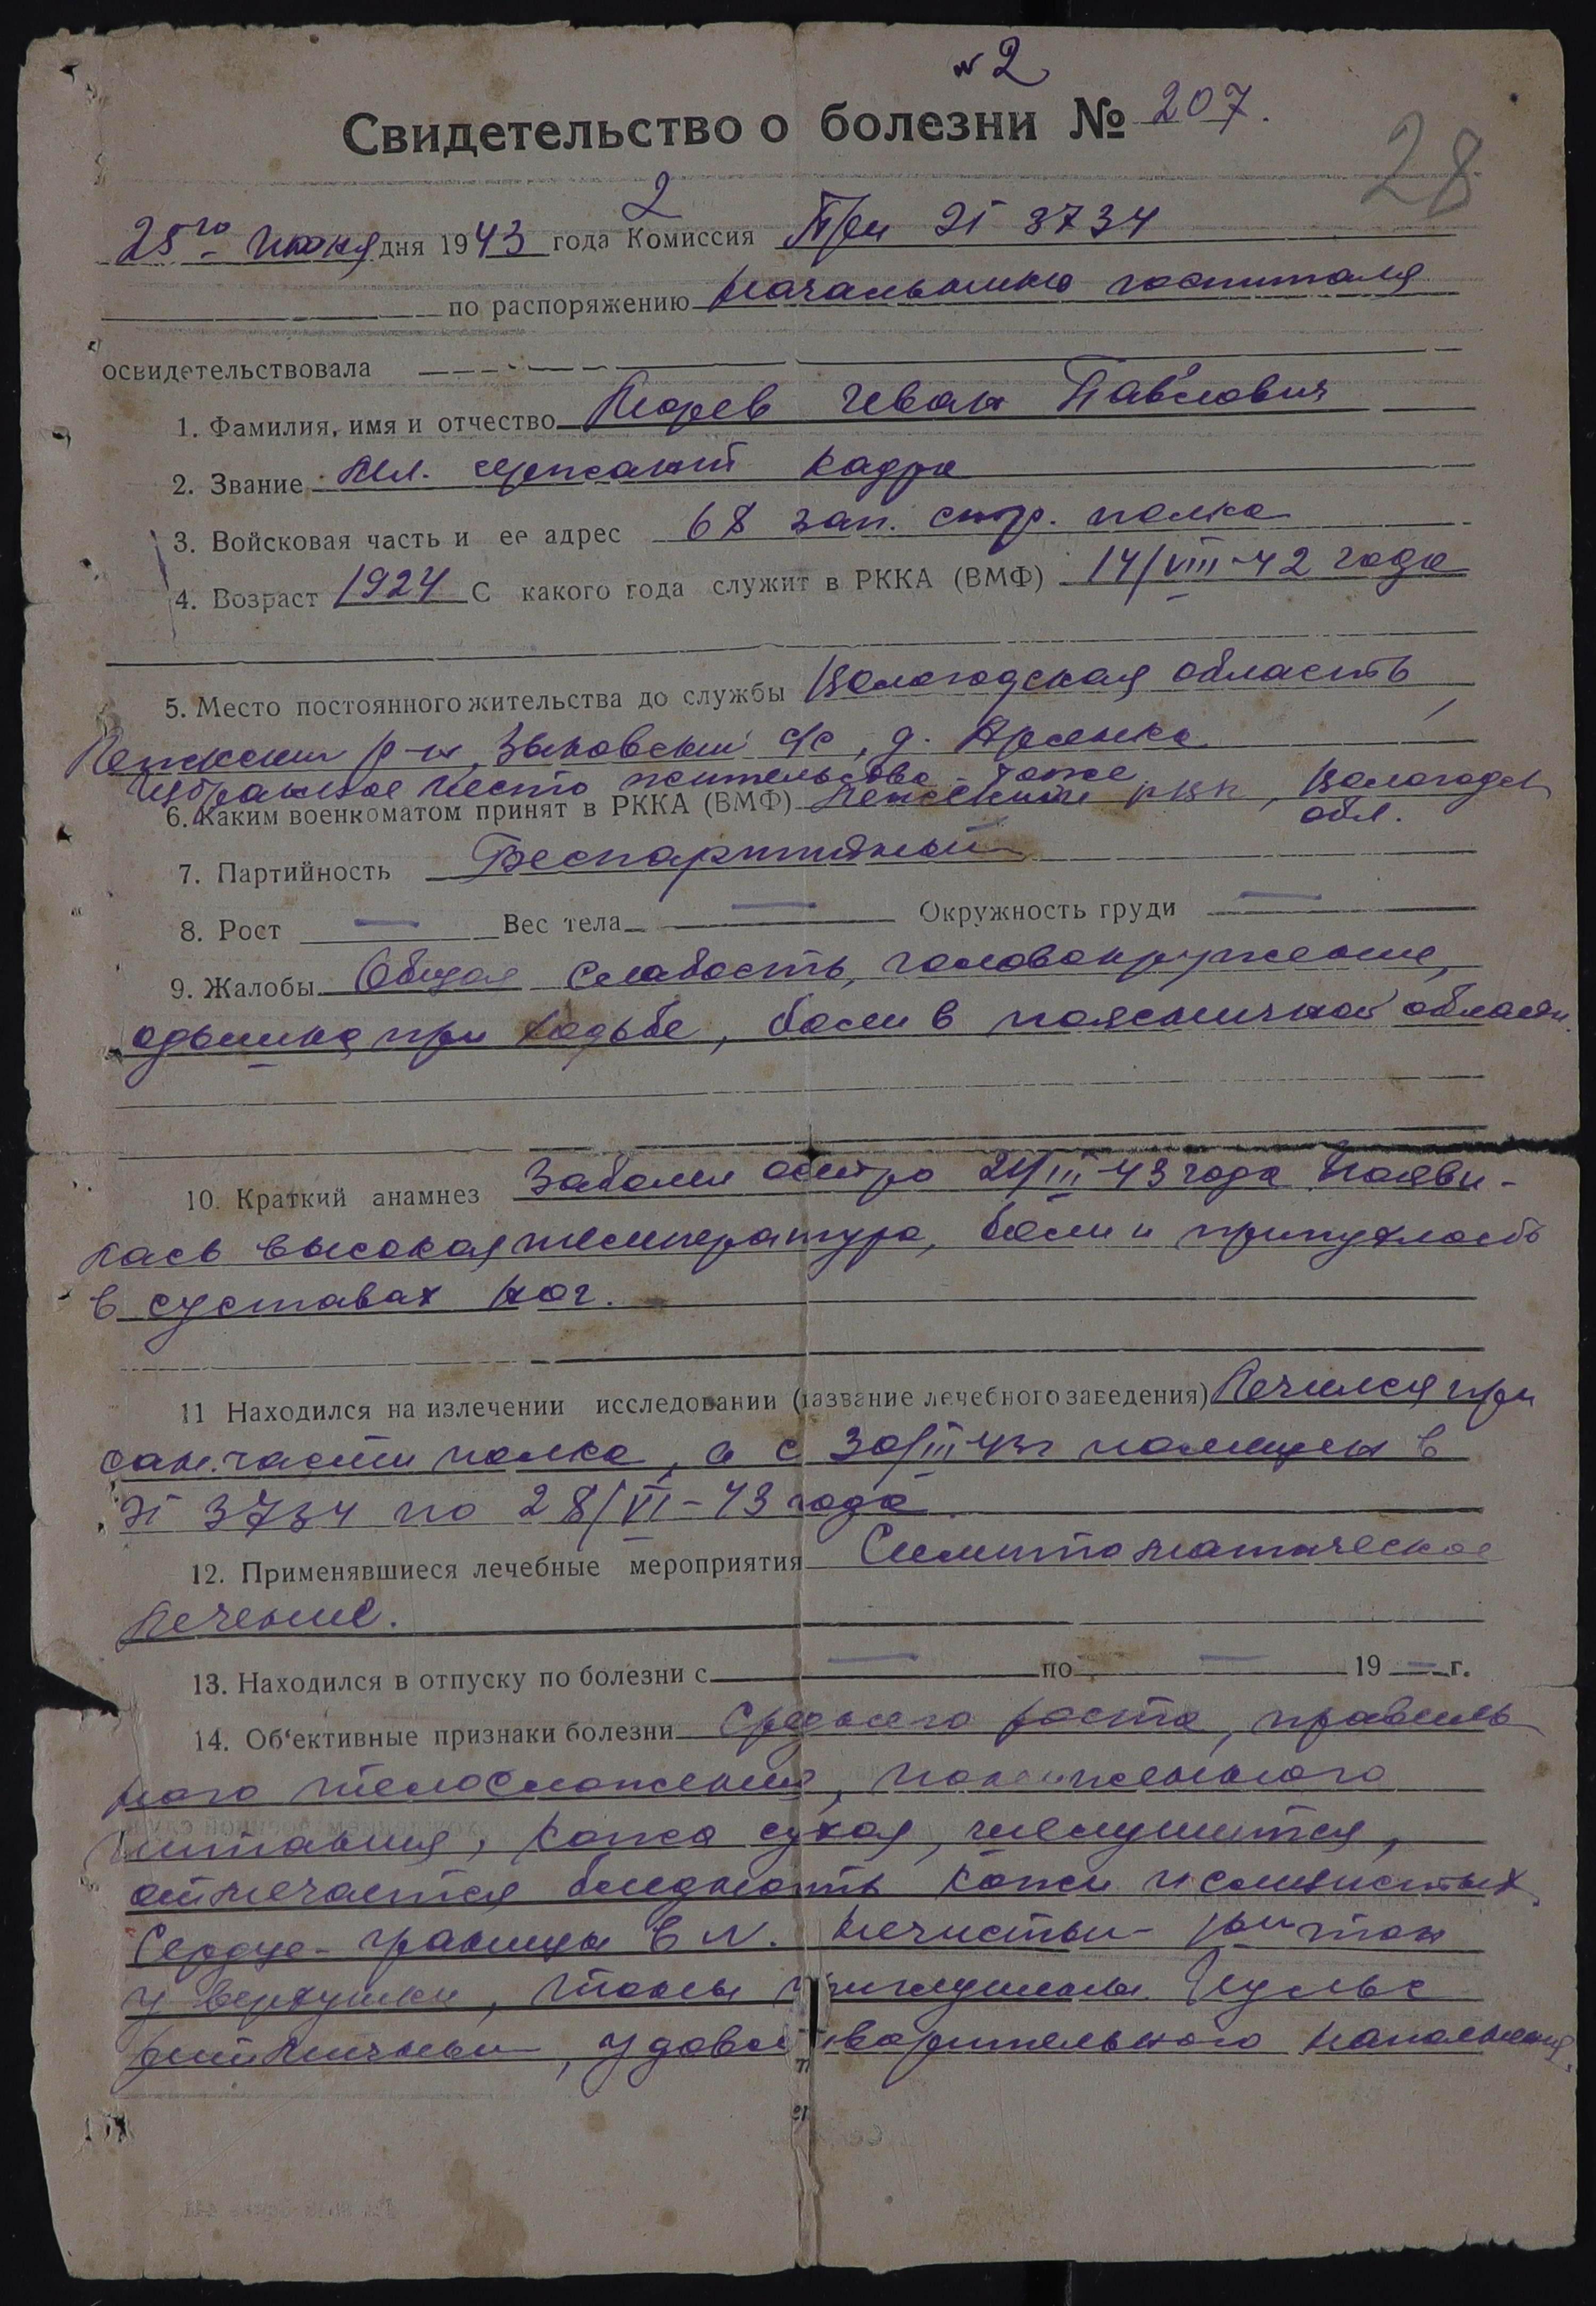 № 2
Свидетельство о болезни № 207.
28
2
25го июня дня 1943 года Комиссия При ЭГ 3734
по распоряжению начальника госпиталя
освидетельствовала
1. Фамилия, имя и отчество Иван Павлович
2. Звание Мл. сержант кадра
3. Войсковая часть и ее адрес 68 зап. стр. полка
4. Возраст 1924 С какого года служит в РККА (ВМФ) 14/VIII-42 года
5. Место постоянного жительства до службы Вологодская область,
р-н, с/с, д.
Избранное место жительства - тоже
6. Каким военкоматом принят в РККА (ВМФ) РВК, Вологодск
обл.
7. Партийность Беспартийный
8. Рост — Вес тела — Окружность груди —
9. Жалобы Общая слабость, головокружение,
одышка при ходьбе, боли в поясничной области.
10. Краткий анамнез Заболел остро 24/III-43 года Появи-
лась высокая температура, боли и припухлость
в суставах ног.
11 Находился на излечении исследовании (название лечебного заведения) Лечился при
сан.части полка, а с 30/III-43г помещен в
ЭГ 3734 по 28/VI-43 года.
12. Применявшиеся лечебные мероприятия Симптоматическое
лечение.
13. Находился в отпуску по болезни с — по — 19 — г.
14. Об‘ективные признаки болезни Среднего роста, правиль
ного телосложения, пониженного
питания, кожа сухая, шелушится,
отмечается бледность кожи и слизистых.
Сердце - границы в N. Нечистый I-ый тон
у верхушки, тоны приглушены. Пульс
ритмичный, удовлетворительного наполнения.